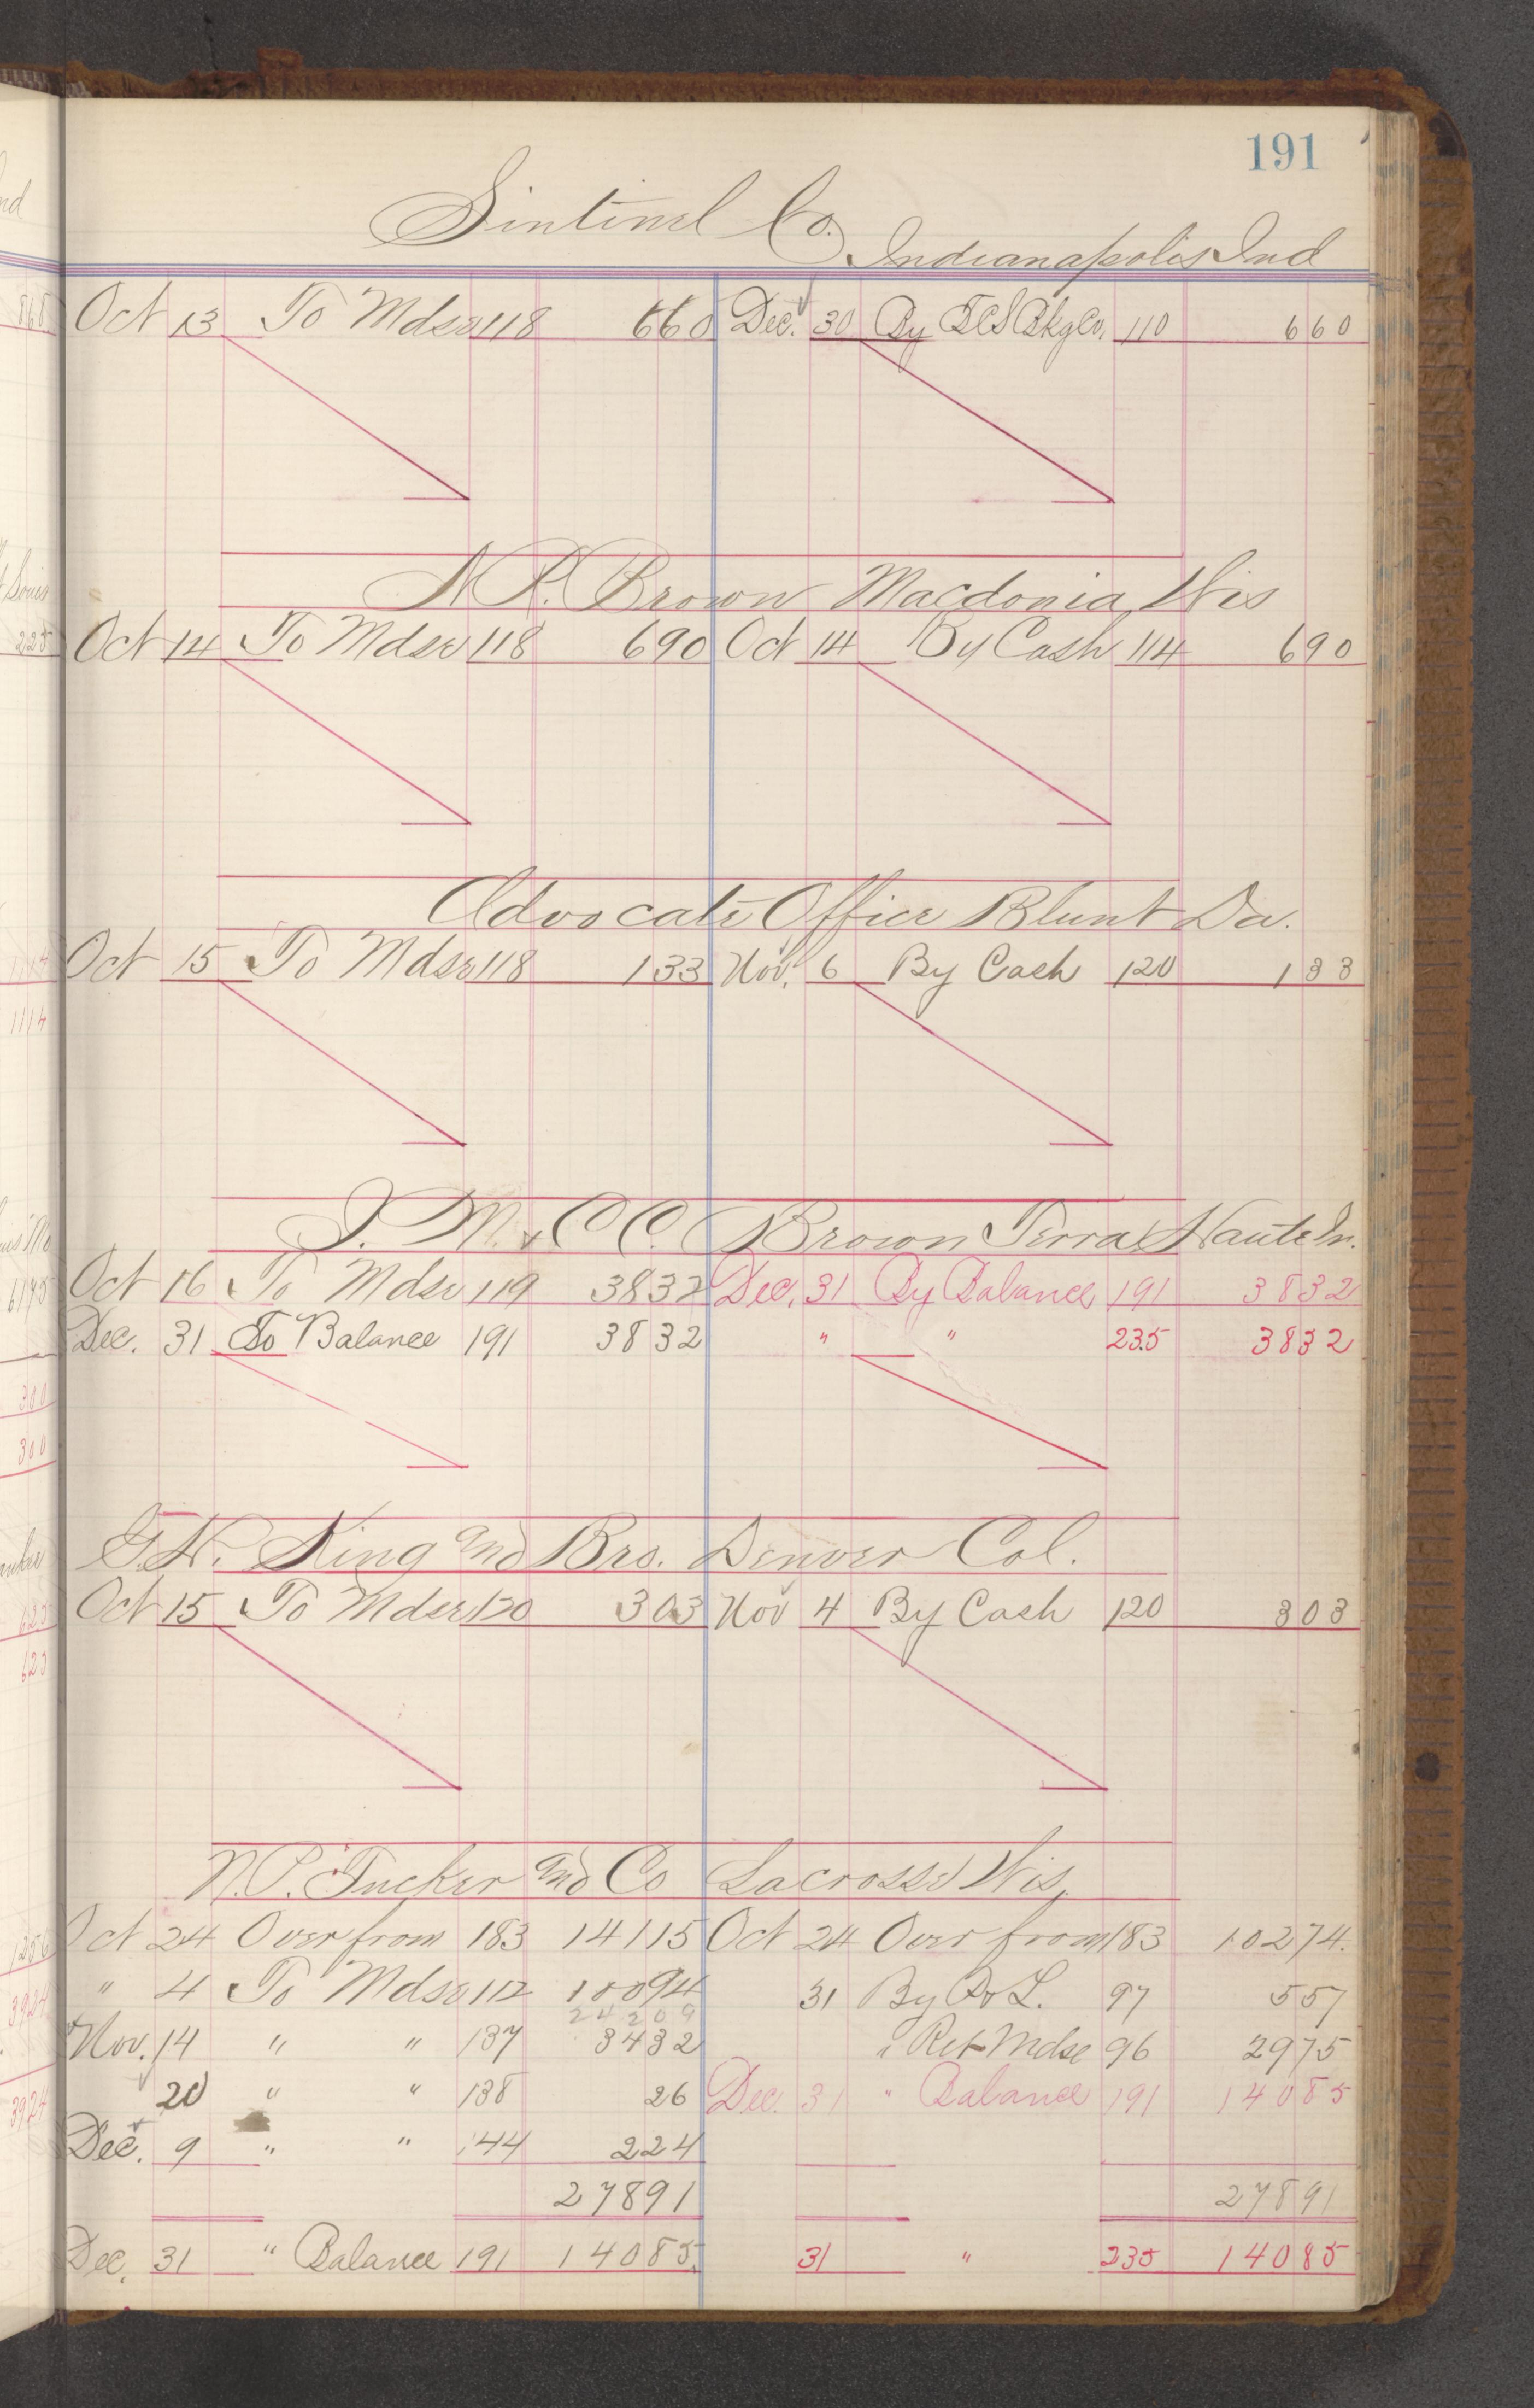 191
Sintinel Co. Indianapolis Ind
Oct 13 To Mdse 118 660 Dec. 30 By Bkg Co. 110 660
N P. Brown Macdonia Wis
Oct 14 To Mdse 118 690 Oct 14 By Cash 114 690
Advocate Office Blunt Da.
Oct 15 To Mdse 118 133 Nov. 6 By Cash 120 133
J. M. & C C. Brown Terra Haute In.
Oct 16 To Mdse 119 3832 Dec. 31 By Balance 191 3832
Dec. 31 To Balance 191 3832 " " 235 3832
King and Bro. Denver Col.
Oct 15 To Mdse 120 303 Nov 4 By Cash 120 303
N. P. Tucker and Co Lacrosse Wis.
Oct 24 Over from 183 14115 Oct 24 Over from 183 10274.
" 4 To Mdse 112 10094 31 By P & L. 97 557
24209
Nov. 14 " " 137 3432 " Ret Mdse 96 2975
20 " " 138 26 Dec. 31 " Balance 191 14085
Dec. 9 " " 144 224
27891 27891
Dec. 31 " Balance 191 14085 31 " 235 14085